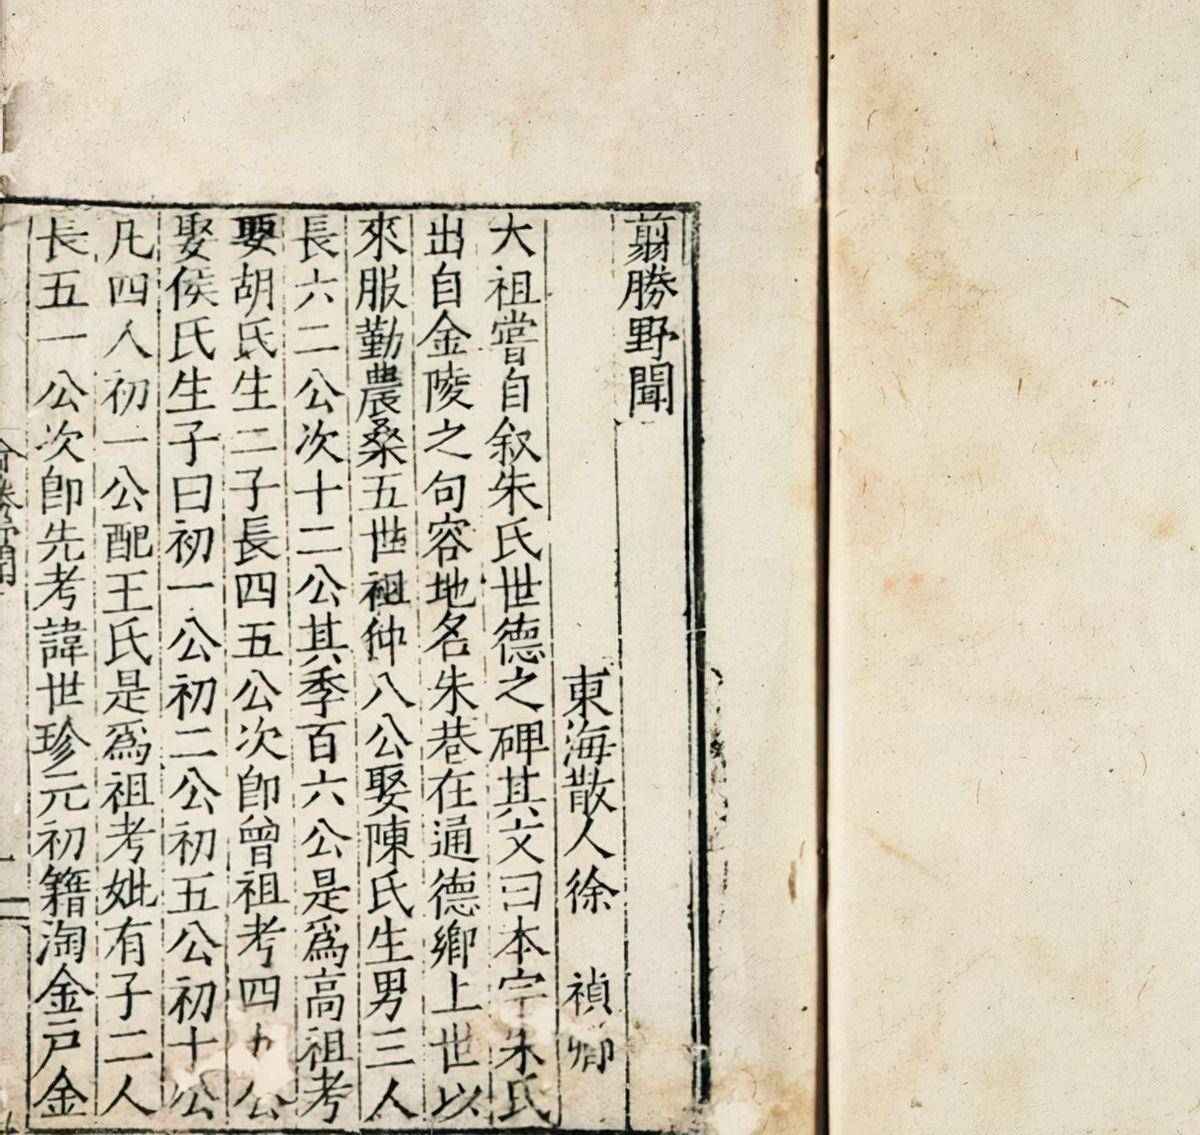 翦勝野聞
東海散人徐 禎卿
大祖嘗自叙朱氏世德之碑其文曰本宗朱氏
出自金陵之句容地名朱巷在通德鄉上世以
來服勤農桑五世祖仲八公娶陳氏生男三人
長六二公次十二公其季百六公是爲高祖考
娶胡氏生二子長四五公次卽曾祖考四九公
娶侯氏生子曰初一公初二公初五公初十公
凡四人初一公配王氏是爲祖考妣有子二人
長五一公次卽先考諱世珍元初籍淘金戶金